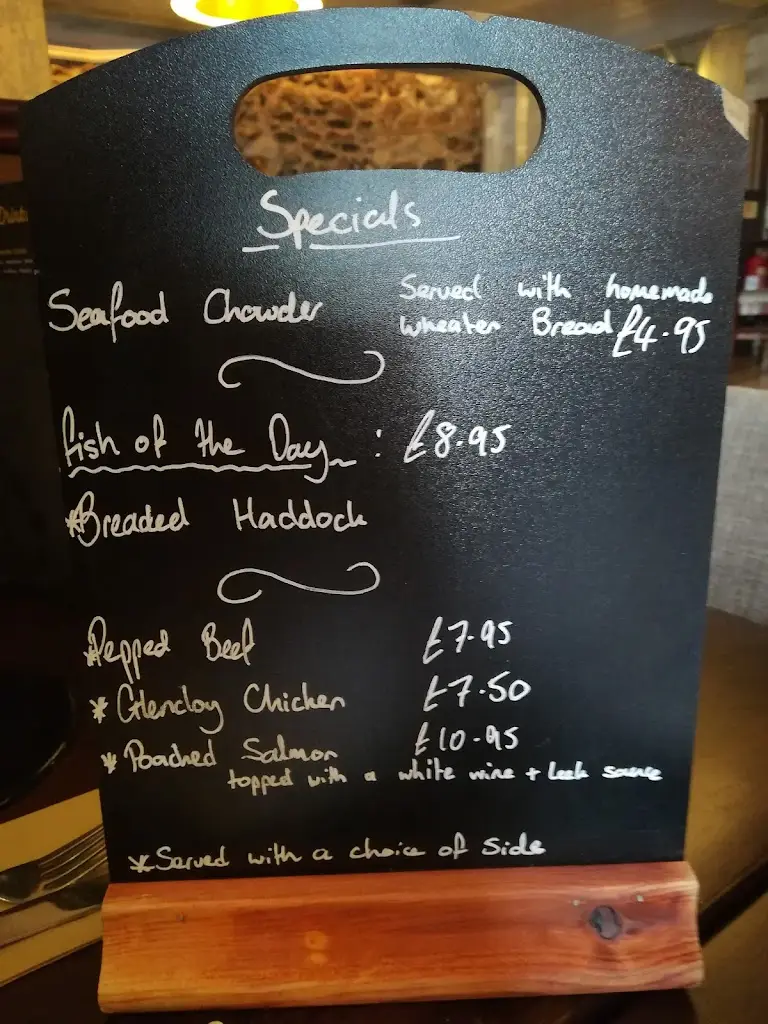 Drinks
Specials
Seafood Chowder Served with homemade
wheaten Bread £4.95
Fish of the Day : £8.95
*Breaded Haddock
*Pepped Beef £7.95
* Glencloy Chicken £7.50
* Poached Salmon £10.95
topped with a white wine + leek sauce
*Served with a choice of Side